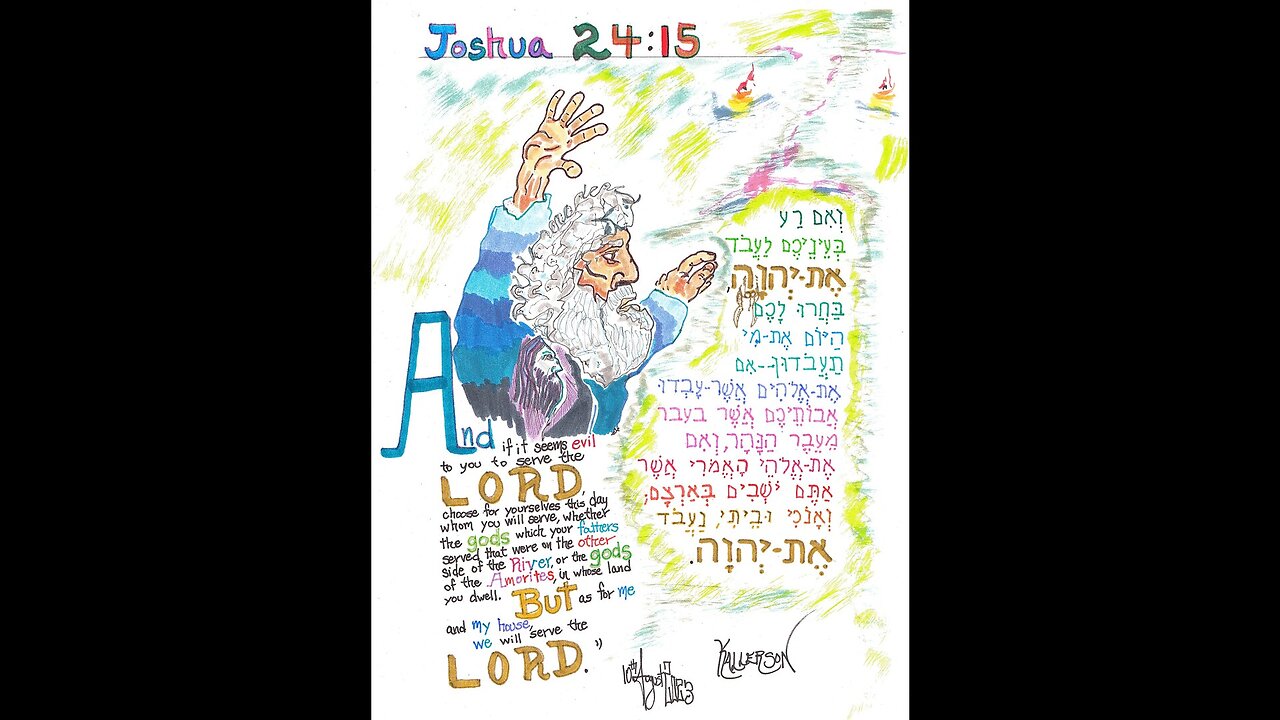 Joshua 24:15
וְאִם רַע
בְּעֵינֵיכֶם לַעֲבֹד
אֶת-יְהוָה,
בַּחֲרוּ לָכֶם
הַיּוֹם אֶת-מִי
תַעֲבֹדוּן--אִם
אֶת-אֱלֹהִים אֲשֶׁר-עָבְדוּ
אֲבוֹתֵיכֶם אֲשֶׁר בעבר
מֵעֵבֶר הַנָּהָר, וְאִם
אֶת-אֱלֹהֵי הָאֱמֹרִי אֲשֶׁר
אַתֶּם יֹשְׁבִים בְּאַרְצָם;
וְאָנֹכִי וּבֵיתִי, נַעֲבֹד
אֶת-יְהוָה.
And if it seems evil
to you to serve the
LORD,
choose for yourselves this day
whom you will serve, whether
the gods which your fathers
served that were on the other
side of the River, or the gods
of the Amorites, in whose land
you dwell. But as for me
and my house,
we will serve the
LORD.
10th August 2013
KALLERSON